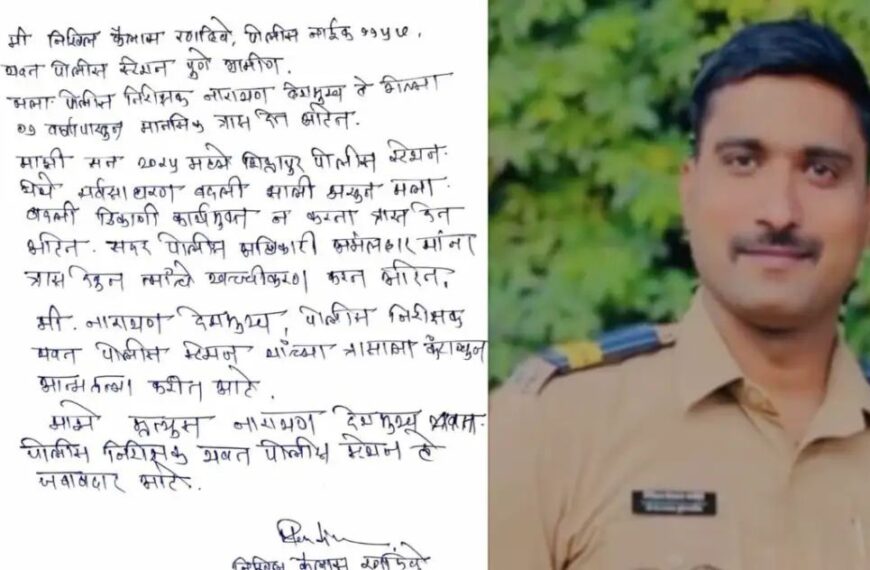 मी निखिल कैलास रणदिवे, पोलीस नाईक ११५७,
यवत पोलीस स्टेशन पुणे ग्रामीण.
मला पोलीस निरीक्षक नारायण देशमुख हे
०१ वर्षापासून मानसिक त्रास देत आहेत.
माझी सन २०२५ मध्ये शिक्रापूर पोलीस स्टेशन
येथे सर्वसाधारण बदली झाली असून मला
बदली ठिकाणी कार्यमुक्त न करता त्रास देत
आहेत. सदर पोलीस अधिकारी अंमलदार यांना
त्रास देऊन त्यांचे खच्चीकरण करत आहेत.
मी. नारायण देशमुख, पोलीस निरीक्षक
यवत पोलीस स्टेशन यांच्या त्रासाला कंटाळून
आत्महत्या करीत आहे.
माझे मृत्युस नारायण देशमुख यवत
पोलीस निरीक्षक यवत पोलीस स्टेशन हे
जबाबदार आहे.
निखिल कैलास रणदिवे